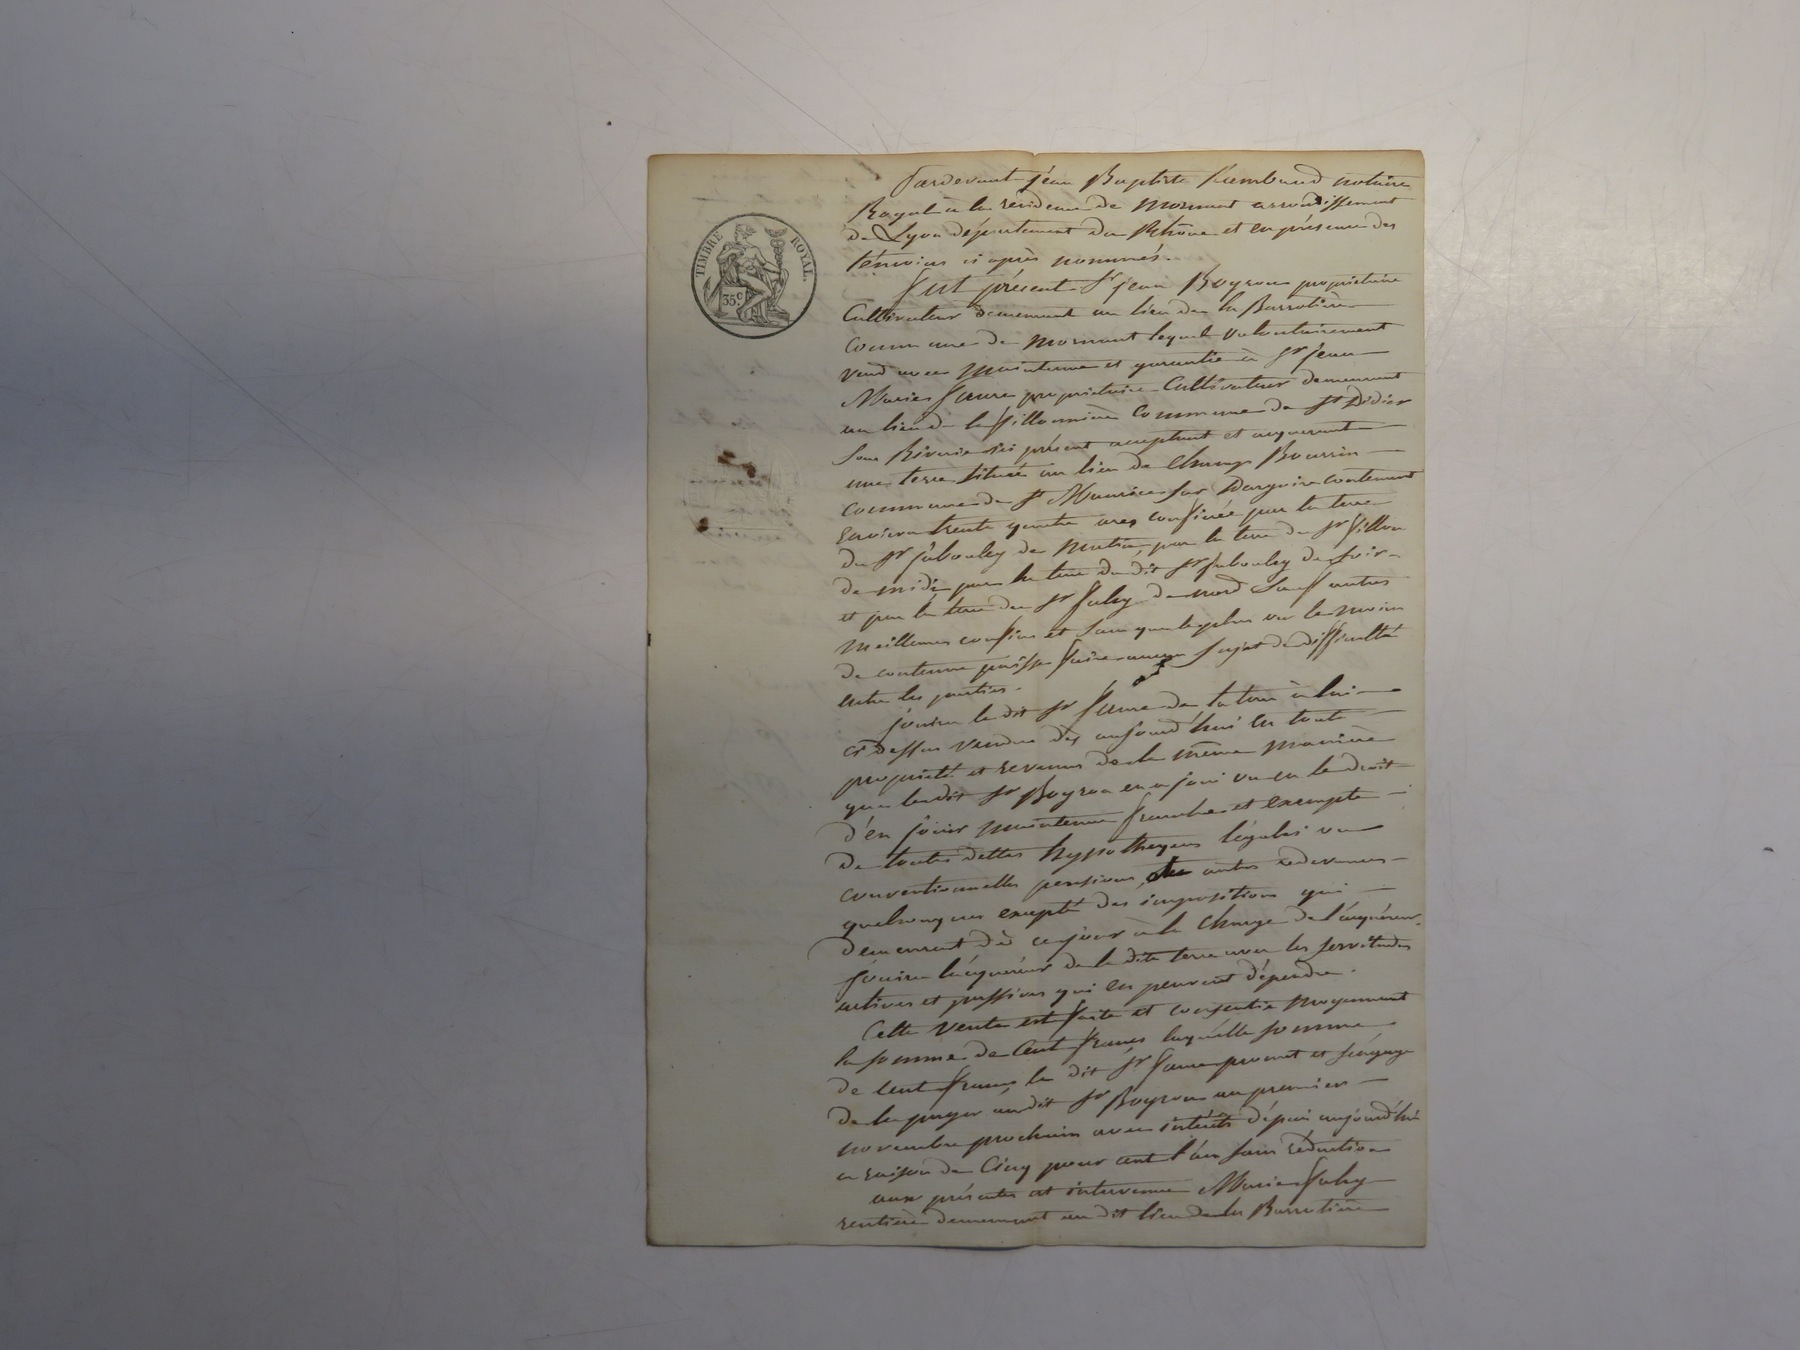 TIMBRE ROYAL
35c.
Pardevant jean Baptiste notaire
Royal à la résidence de Mornant arrondissement
de Lyon département du Rhône et en présence des
témoins ci après nommés.
fut présent Sr jean Boyron propriétaire
Cultivateur demeurant au lieu de la Barrotière
commune de Mornant lequel volontairement
vend avec maintenue et garantie à Sr jean
Marie faure propriétaire Cultivateur demeurant
au lieu de la fillonnière commune de St Didier
sous Riverie ici présent acceptant et acquerant
une terre située au lieu de Champ Bourrin
commune de St Maurice sur Dargoire contenant
Environ trente quatre ares confinée par la terre
du Sr jabouley de matin, par la terre du Sr fillon
de midi par la terre du dit Sr jabouley de soir
et par la terre du Sr de nord Sauf autres
meilleurs confins et sans que le plus ou le moins
de contenue puisse faire aucun sujet de difficulté
entre les parties.
jouira le dit Sr faure de la terre à lui
ci dessus vendue dès aujourd'hui en toute
propriété et revenus de la même manière
que le dit Sr Boyron en a joui ou eu le droit
d'en jouir maintenue franche et exempte
de toutes dettes hypothèques légales ou
conventionnelles pensions, autres redevances
quelconques excepté des impositions qui
demeurent dès ce jour à la charge de l'acquéreur.
jouira l'acquéreur de la dite terre avec les servitudes
actives et passives qui en peuvent dépendre.
Cette vente est faite et consentie moyennant
la somme de Cent francs laquelle somme
de cent francs le dit Sr faure promet et s'engage
de la payer audit Sr Boyron au premier
novembre prochain avec intérêts depuis aujourd'hui
a raison de Cinq pour cent l'an sans réduction
aux présentes est intervenue Marie
rentière demeurant au dit lieu de la Barrotière